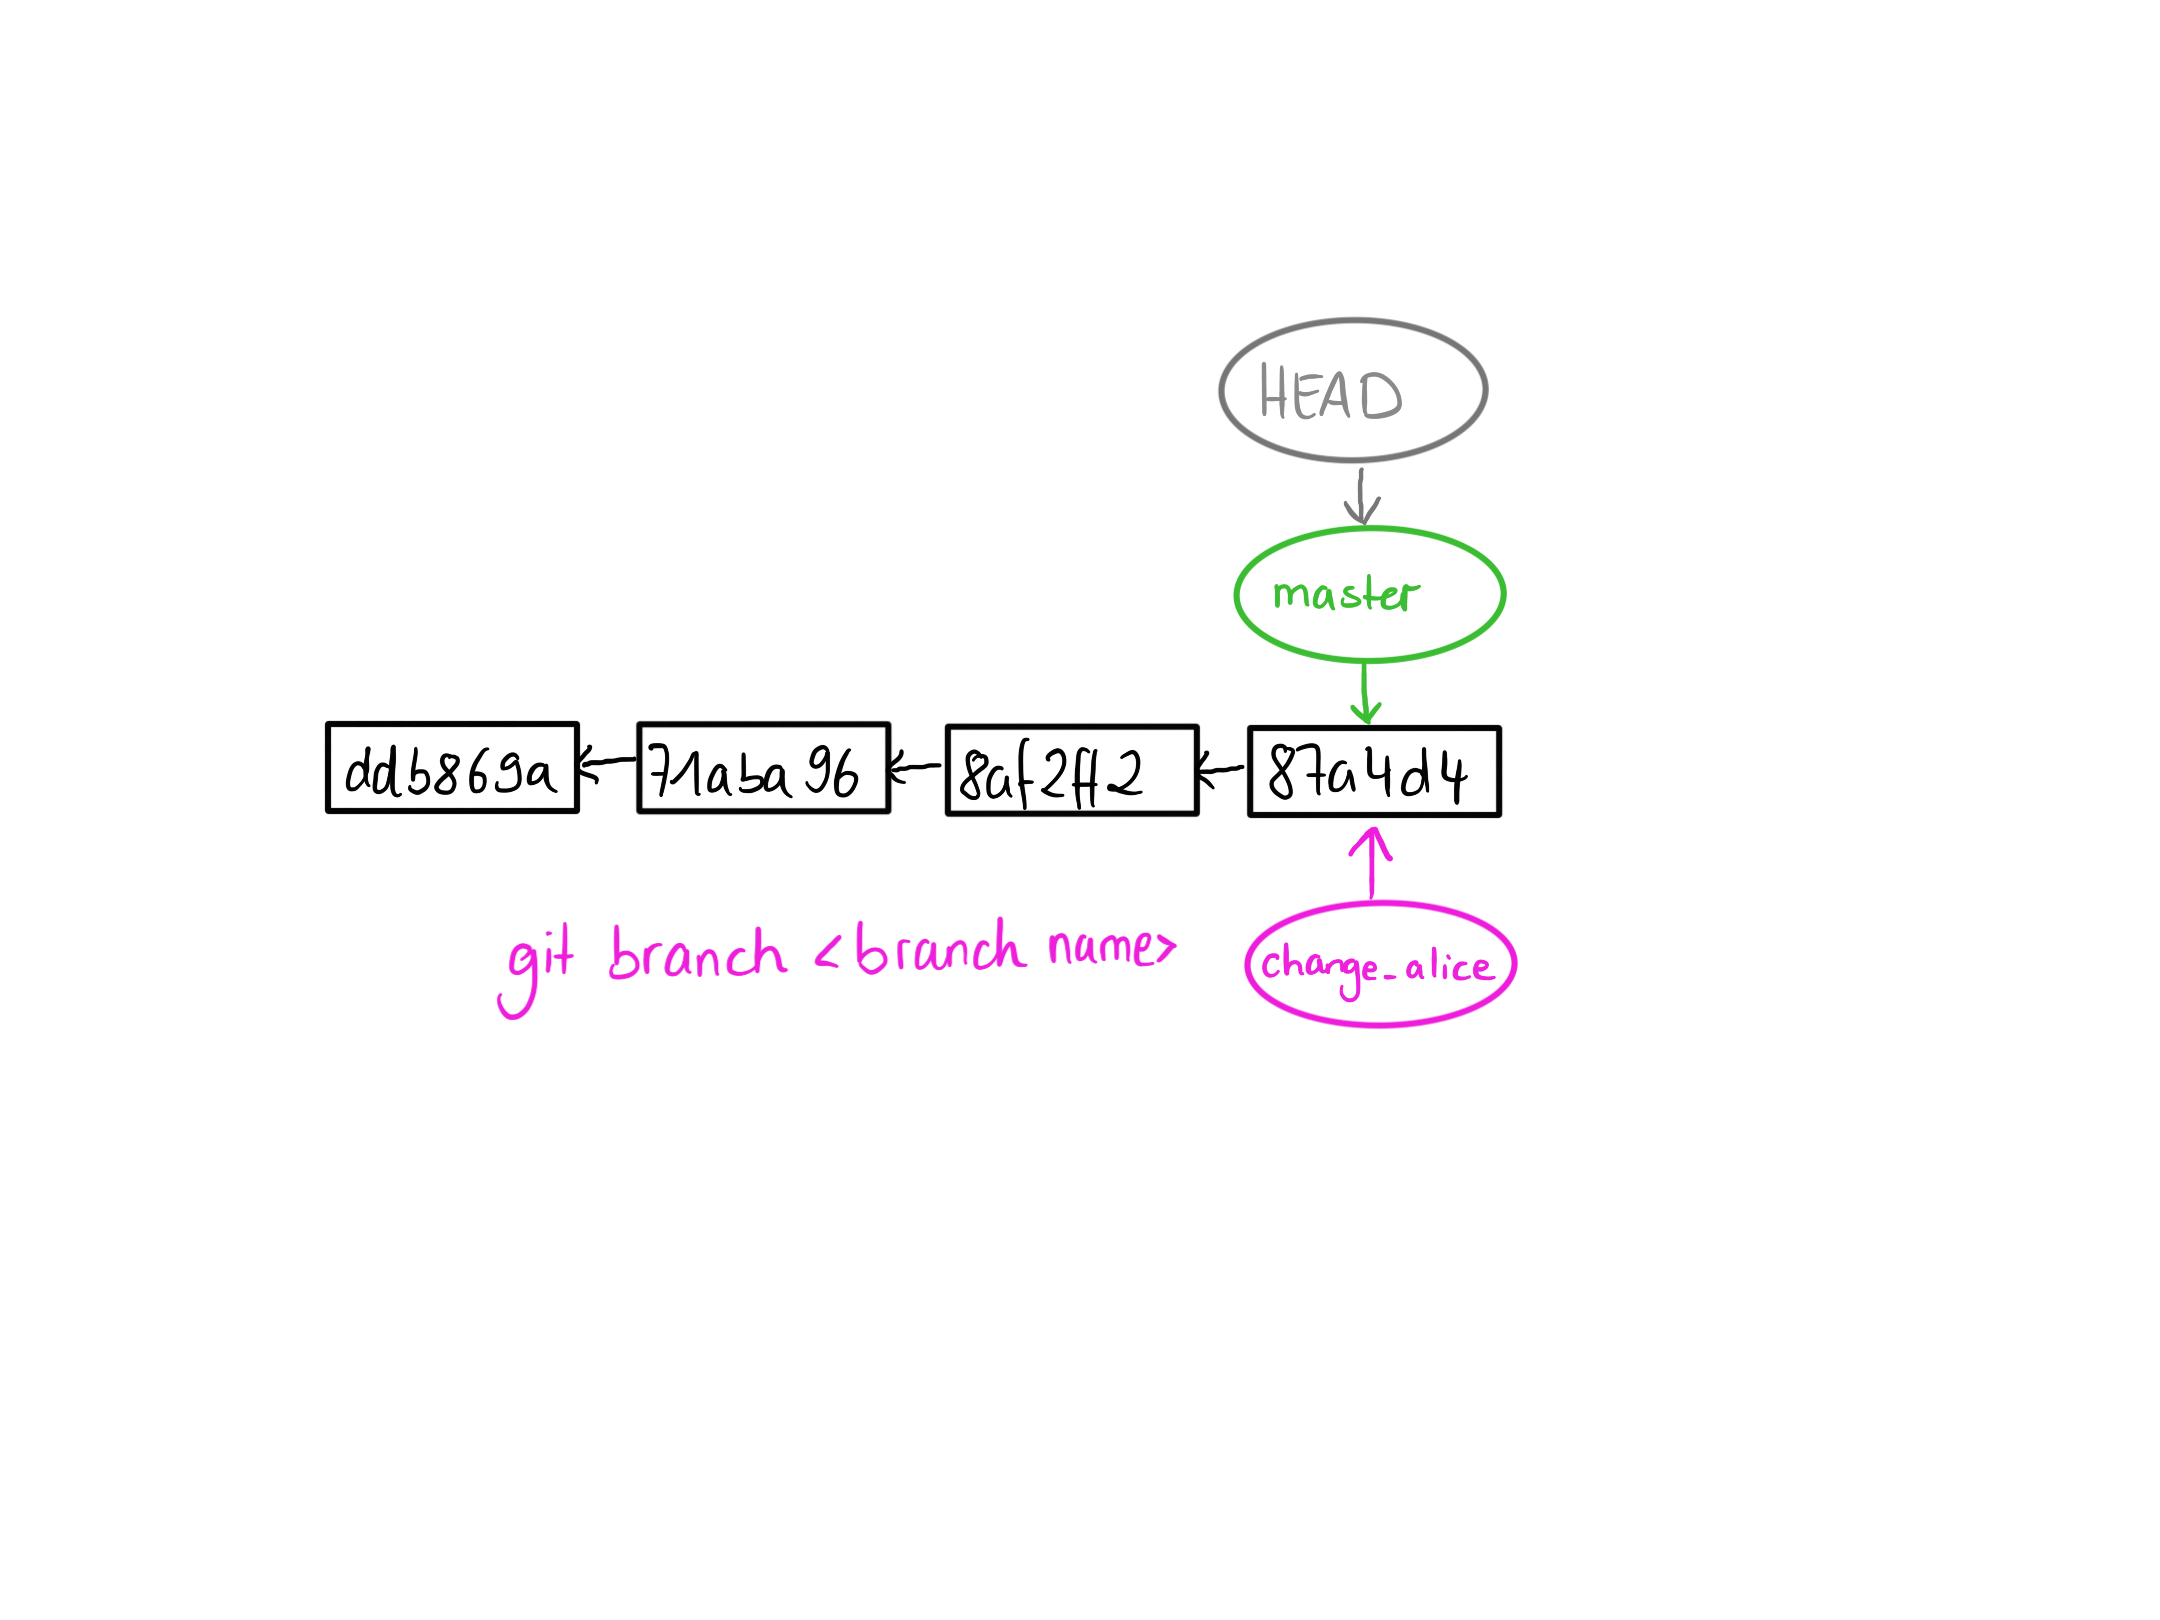 HEAD
master
ddb869a 71aba96 8af2ff2 87a4d4
git branch <branch name> change_alice